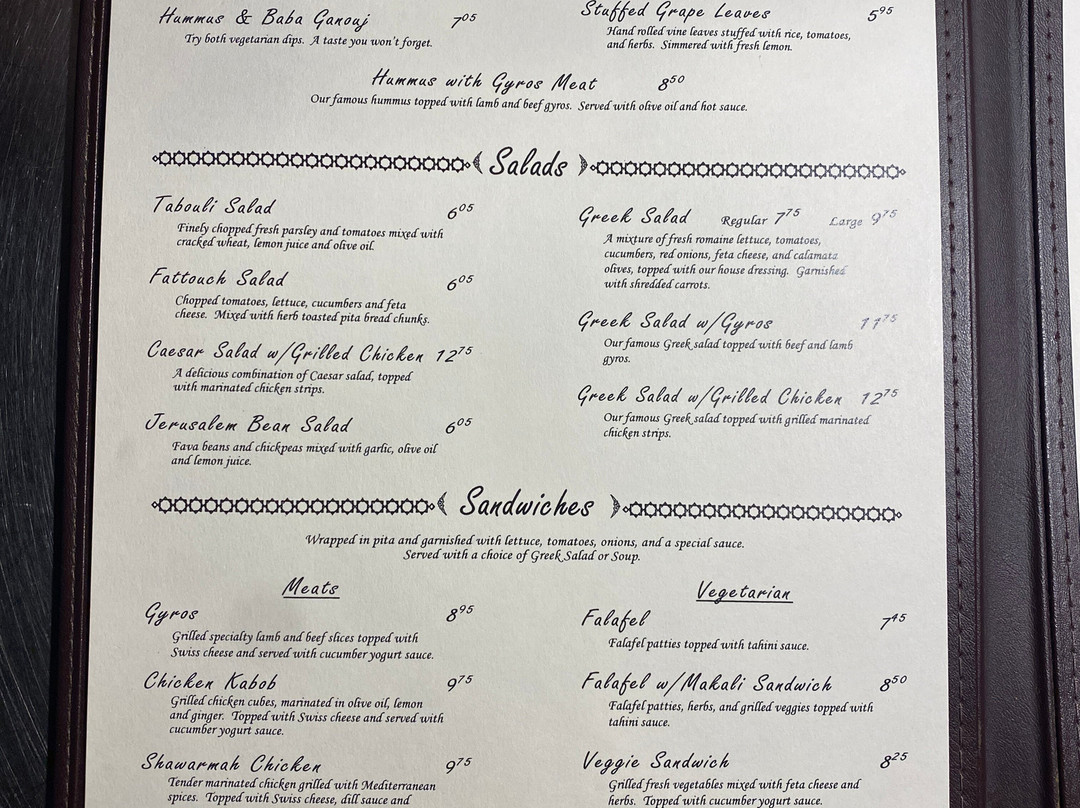 Hummus & Baba Ganouj 7.05
Try both vegetarian dips. A taste you won't forget.
Stuffed Grape Leaves 5.95
Hand rolled vine leaves stuffed with rice, tomatoes,
and herbs. Simmered with fresh lemon.
Hummus with Gyros Meat 8.50
Our famous hummus topped with lamb and beef gyros. Served with olive oil and hot sauce.
Salads
Tabouli Salad 6.05
Finely chopped fresh parsley and tomatoes mixed with
cracked wheat, lemon juice and olive oil.
Fattouch Salad 6.05
Chopped tomatoes, lettuce, cucumbers and feta
cheese. Mixed with herb toasted pita bread chunks.
Caesar Salad w/Grilled Chicken 12.75
A delicious combination of Caesar salad, topped
with marinated chicken strips.
Jerusalem Bean Salad 6.05
Fava beans and chickpeas mixed with garlic, olive oil
and lemon juice.
Greek Salad Regular 7.75 Large 9.75
A mixture of fresh romaine lettuce, tomatoes,
cucumbers, red onions, feta cheese, and calamata
olives, topped with our house dressing. Garnished
with shredded carrots.
Greek Salad w/Gyros 11.75
Our famous Greek salad topped with beef and lamb
gyros.
Greek Salad w/Grilled Chicken 12.75
Our famous Greek salad topped with grilled marinated
chicken strips.
Sandwiches
Wrapped in pita and garnished with lettuce, tomatoes, onions, and a special sauce.
Served with a choice of Greek Salad or Soup.
Meats
Gyros 8.95
Grilled specialty lamb and beef slices topped with
Swiss cheese and served with cucumber yogurt sauce.
Chicken Kabob 9.75
Grilled chicken cubes, marinated in olive oil, lemon
and ginger. Topped with Swiss cheese and served with
cucumber yogurt sauce.
Shawarmah Chicken 9.75
Tender marinated chicken grilled with Mediterranean
spices. Topped with Swiss cheese, dill sauce and
Vegetarian
Falafel 7.45
Falafel patties topped with tahini sauce.
Falafel w/Makali Sandwich 8.50
Falafel patties, herbs, and grilled veggies topped with
tahini sauce.
Veggie Sandwich 8.25
Grilled fresh vegetables mixed with feta cheese and
herbs. Topped with cucumber yogurt sauce.